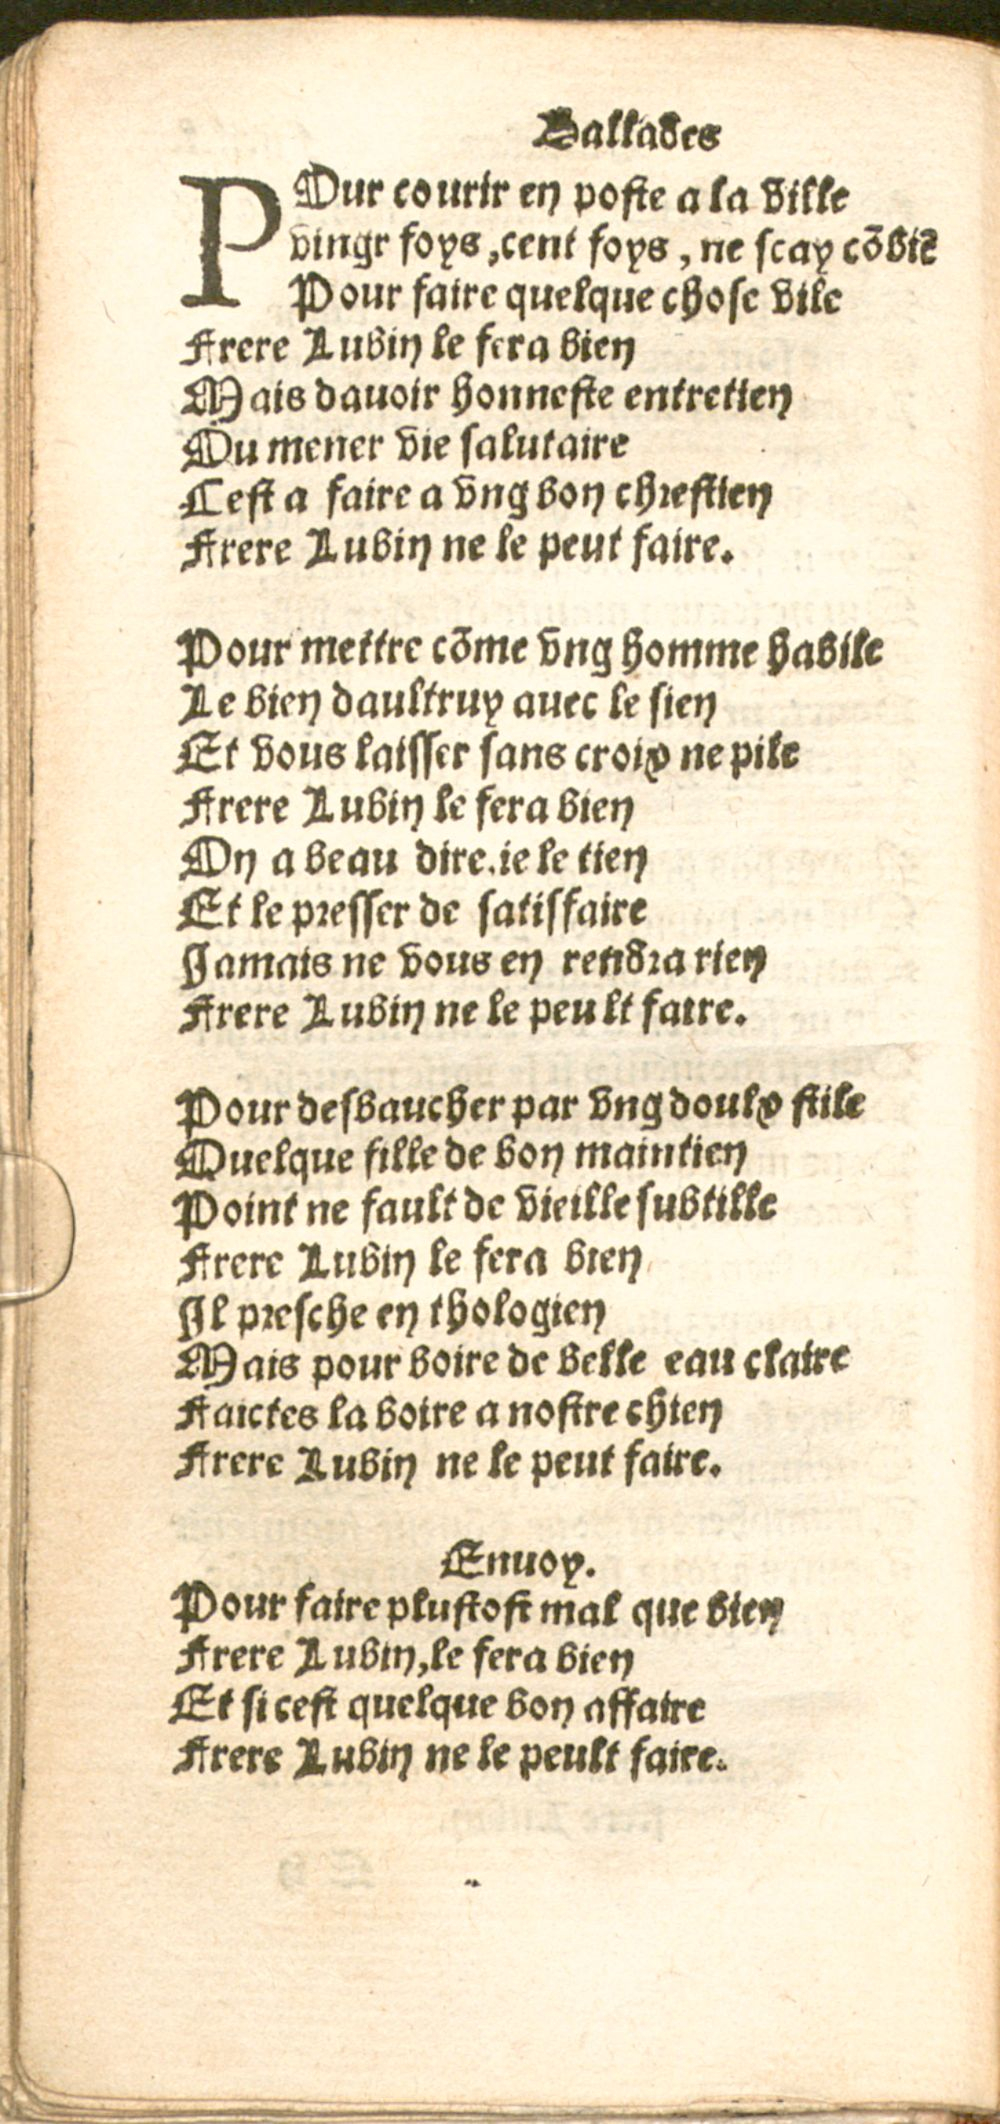 Ballades
POur courir en poste a la ville
vingt foys, cent foys, ne scay cōbiẽ
Pour faire quelque chose vile
Frere Lubin le fera bien
Mais dauoir honneste entretien
Ou mener vie salutaire
Cest a faire a vng bon chrestien
Frere Lubin ne le peut faire.
Pour mettre cōme vng homme habile
Le bien daultruy auec le sien
Et vous laisser sans croix ne pile
Frere Lubin le fera bien
On a beau dire.ie le tien
Et le presser de satisfaire
Jamais ne vous en rendra rien
Frere Lubin ne le peult faire.
Pour desbaucher par vng doulx stile
Quelque fille de bon maintien
Point ne fault de vieille subtille
Frere Lubin le fera bien
Il presche en thologien
Mais pour boire de belle eau claire
Faictes la boire a nostre chien
Frere Lubin ne le peut faire.
Enuoy.
Pour faire plustost mal que bien
Frere Lubin,le fera bien
Et si cest quelque bon affaire
Frere Lubin ne le peult faire.